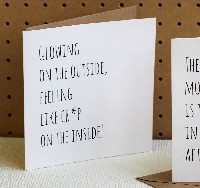 GLOWING
ON THE OUTSIDE,
FEELING
LIKE CR*P
ON THE INSIDE!
THE
MO
IS
IN